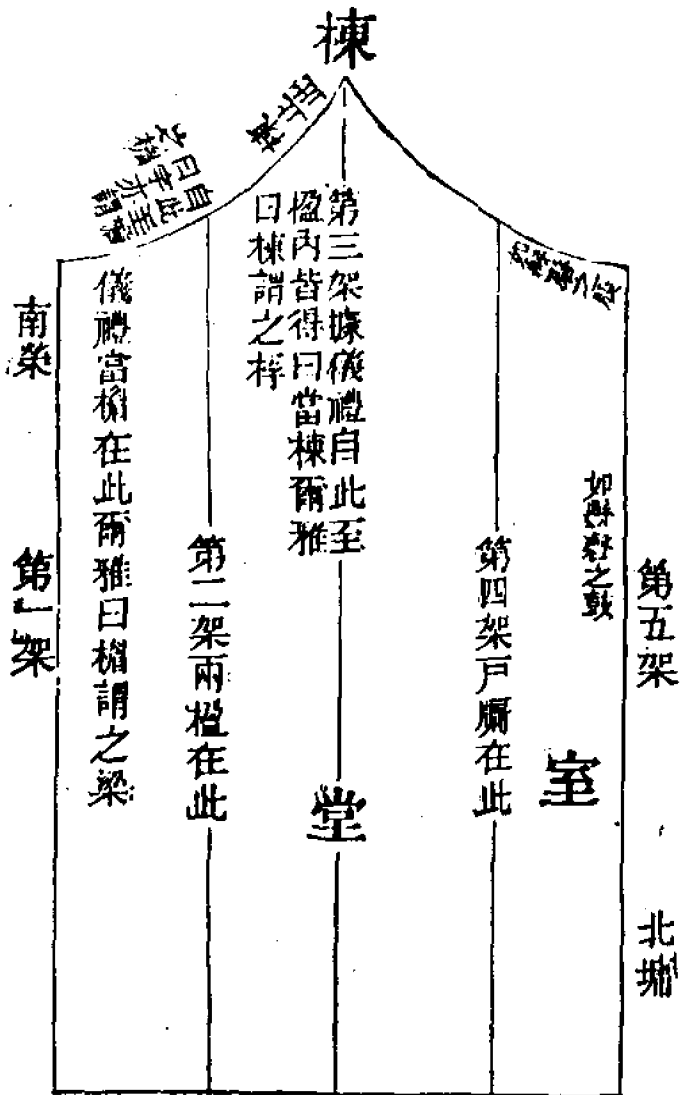 棟
第五架
北墉
室
第四架戶牖在此
第三架據儀禮自此至
楹內皆得曰當棟爾雅
曰棟謂之桴
堂
第二架兩楹在此
自此至
曰宇亦謂
之梠
儀禮當楣在此爾雅曰楣謂之梁
南榮
第一架